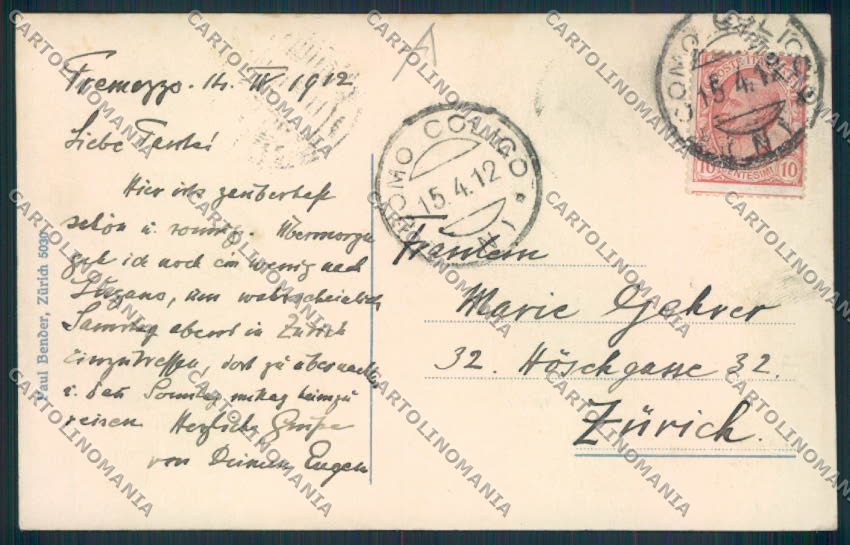 Tremezzo. 14. IV. 1912
Liebe Tante!
Hier ists zauberhaft
schön u. sonnig. Übermorgen
geh ich noch ein wenig nach
Lugano, um wahrscheinlich
Samstag abend in Zürich
einzutreffen, dort zu übernachten
u. den Sonntag mittag heimzu
reisen. Herzliche Grüße
von Deinem Eugen
Paul Bender, Zürich
COMO COLICO
15.4.12
COMO COLICO
15.4.12
POSTE ITALIANE
10 CENTESIMI 10
Fräulein
Marie Gehrer
32. Höschgasse 32.
Zürich.
CARTOLINOMANIA